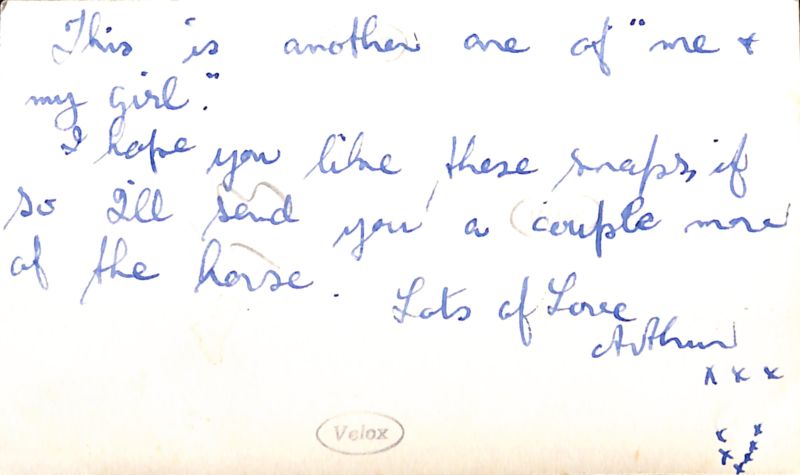 This is another one of "me &
my girl".
I hope you like these snaps, if
so I'll send you a couple more
of the horse.
Lots of Love
Arthur
x x x
x x x x x x
Velox